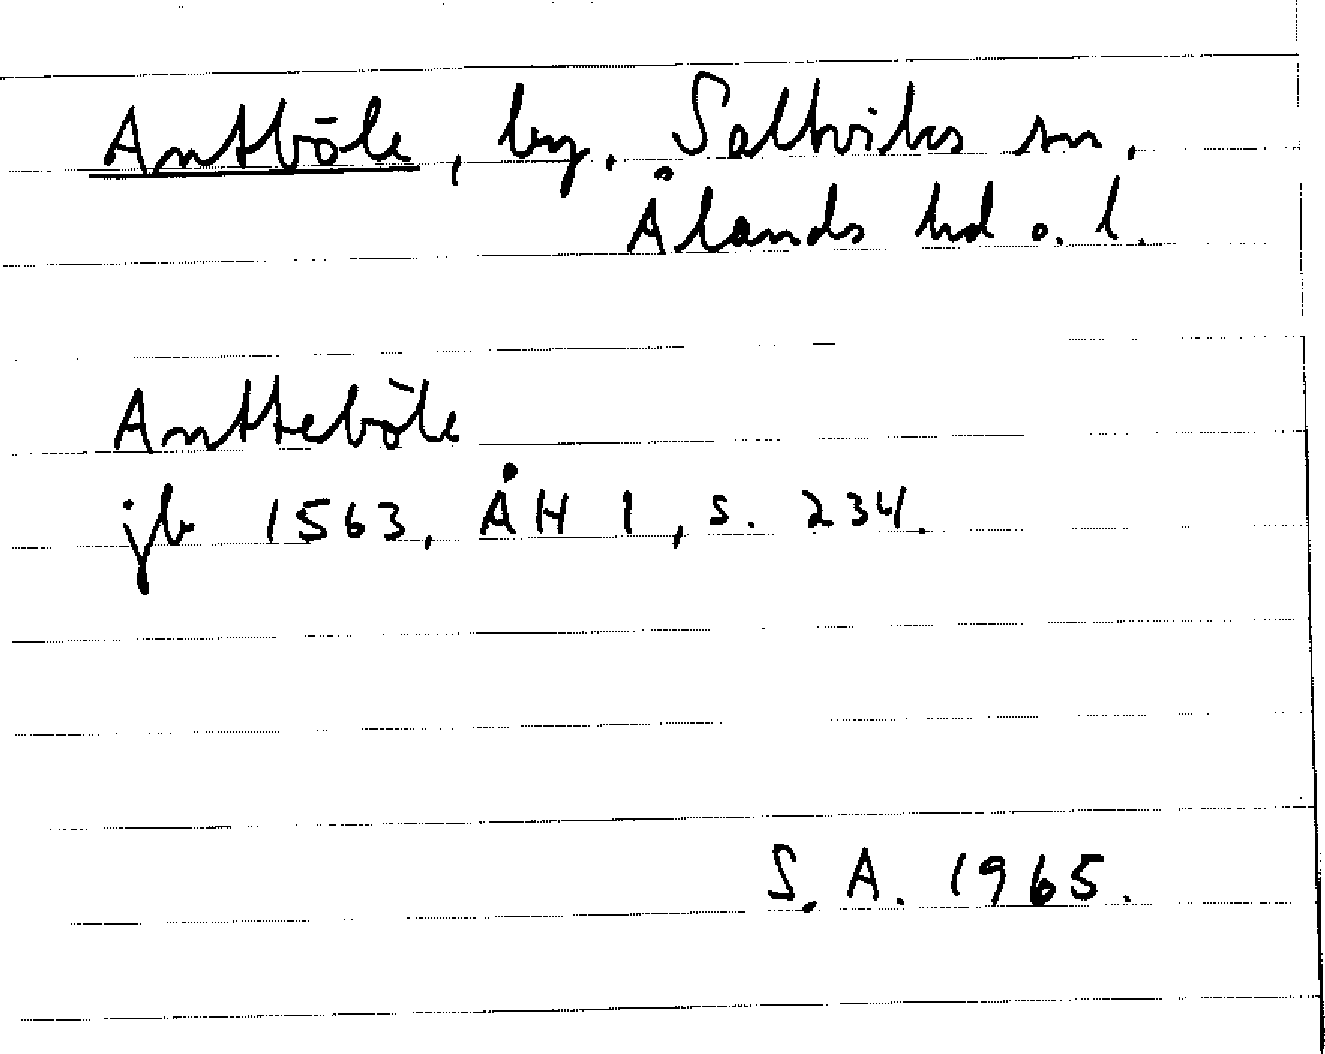 Antböle, by. Saltviks sn,
Ålands hd o. l.
Antteböle
jb 1563, ÅH I, s. 234.
S. A. 1965.